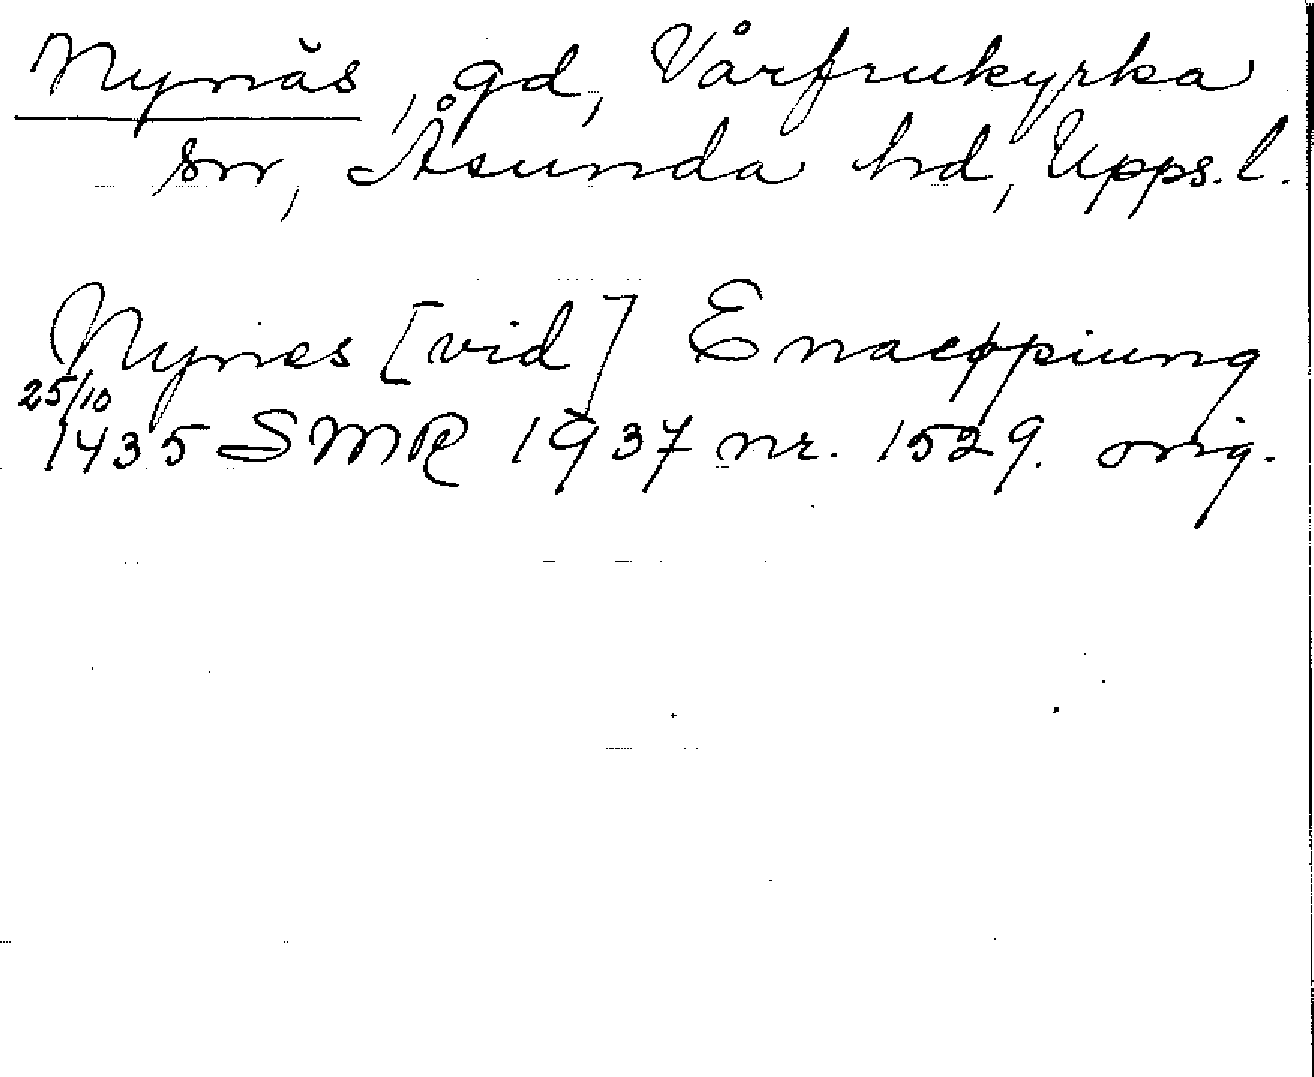 Nynäs, gd, Vårfrukyrka
sn, Åsunda hd, Upps. l.
Nynes [vid] Enaeppiung
25/10
1435 SMR 1937 nr. 1529. orig.